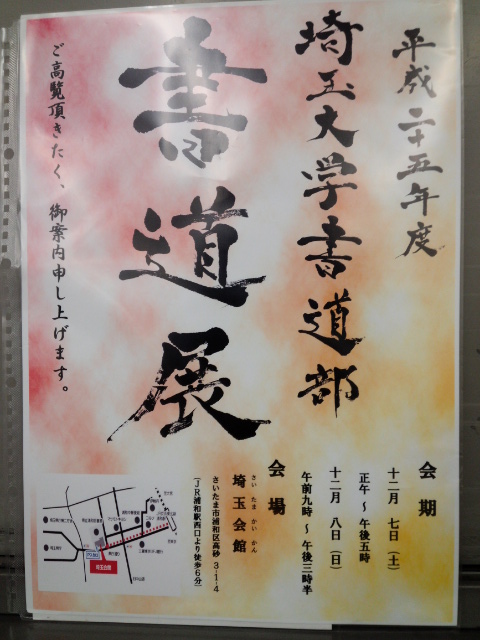 平成二十五年度
埼玉大学書道部
書道展
ご高覧頂きたく、御案内申し上げます。
会期
十二月 七日(土)
正午～午後五時
十二月 八日(日)
午前九時～午後三時半
会場
さいたまかいかん
埼玉会館
さいたま市浦和区高砂 3-1-4
(JR浦和駅西口より徒歩6分)
埼玉会館